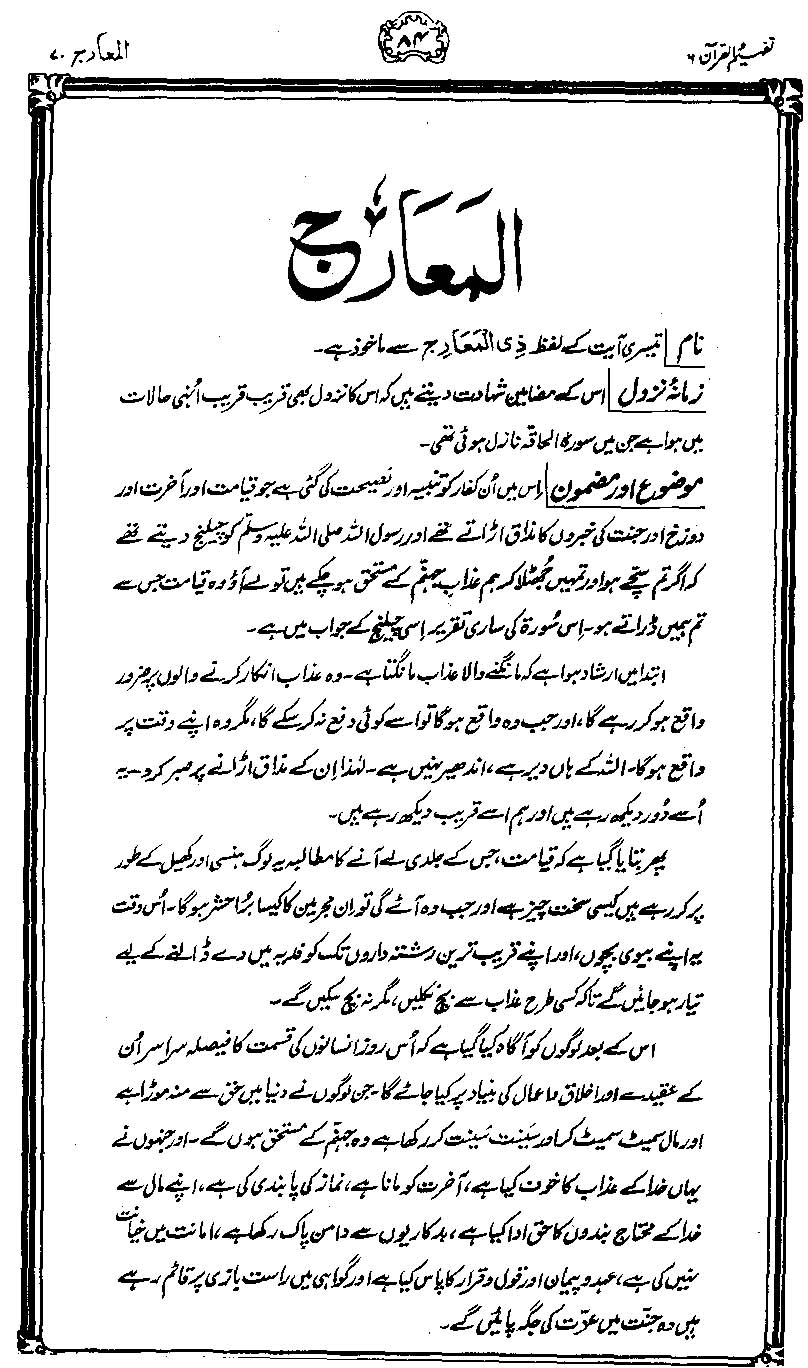 تفہیم القرآن ۶
۸۴
المعارج ۷۰
المَعَارِج
نام تیسری آیت کے لفظ ذِی الْمَعَارِج سے ماخوذ ہے۔
زمانۂ نزول اس کے مضامین شہادت دیتے ہیں کہ اس کا نزول بھی قریب قریب اُنہی حالات
میں ہوا ہے جن میں سورۃ الحاقہ نازل ہوئی تھی۔
موضوع اور مضمون اِس میں اُن کفار کو تنبیہ اور نصیحت کی گئی ہے جو قیامت اور آخرت اور
دوزخ اور جنت کی خبروں کا مذاق اڑاتے تھے اور رسول اللہ صلی اللہ علیہ وسلم کو چیلنج دیتے تھے
کہ اگر تم سچے ہو اور تمہیں جُھٹلا کر ہم عذابِ جہنّم کے مستحق ہو چکے ہیں تو لے آؤ وہ قیامت جس سے
تم ہمیں ڈراتے ہو۔ اِس سُورۃ کی ساری تقریر اِسی چیلنج کے جواب میں ہے۔
ابتدا میں ارشاد ہوا ہے کہ مانگنے والا عذاب مانگتا ہے۔ وہ عذاب انکار کرنے والوں پر ضرور
واقع ہو کر رہے گا، اور جب وہ واقع ہو گا تو اسے کوئی دفع نہ کر سکے گا، مگر وہ اپنے وقت پر
واقع ہو گا۔ اللہ کے ہاں دیر ہے، اندھیر نہیں ہے۔ لہٰذا اِن کے مذاق اڑانے پر صبر کرو۔ یہ
اُسے دُور دیکھ رہے ہیں اور ہم اسے قریب دیکھ رہے ہیں۔
پھر بتایا گیا ہے کہ قیامت، جس کے جلدی لے آنے کا مطالبہ یہ لوگ ہنسی اور کھیل کے طور
پر کر رہے ہیں کیسی سخت چیز ہے اور جب وہ آئے گی تو اِن مجرمین کا کیسا بُرا حشر ہو گا۔ اُس وقت
یہ اپنے بیوی بچوں، اور اپنے قریب ترین رشتہ داروں تک کو فدیہ میں دے ڈالنے کے لیے
تیار ہو جائیں گے تاکہ کسی طرح عذاب سے بچ نکلیں، مگر نہ بچ سکیں گے۔
اس کے بعد لوگوں کو آگاہ کیا گیا ہے کہ اُس روز انسانوں کی قسمت کا فیصلہ سراسر اُن
کے عقیدے اور اخلاق و اعمال کی بنیاد پر کیا جائے گا۔ جن لوگوں نے دنیا میں حق سے منہ موڑا ہے
اور مال سمیٹ سمیٹ کر اور سَینت سَینت کر رکھا ہے وہ جہنّم کے مستحق ہوں گے۔ اور جنہوں نے
یہاں خدا کے عذاب کا خوف کیا ہے، آخرت کو مانا ہے، نماز کی پابندی کی ہے، اپنے مال سے
خدا کے محتاج بندوں کا حق ادا کیا ہے، بدکاریوں سے دامن پاک رکھا ہے، امانت میں خیانت
نہیں کی ہے، عہد و پیمان اور قول و قرار کا پاس کیا ہے اور گواہی میں راست بازی پر قائم رہے
ہیں وہ جنّت میں عزّت کی جگہ پائیں گے۔